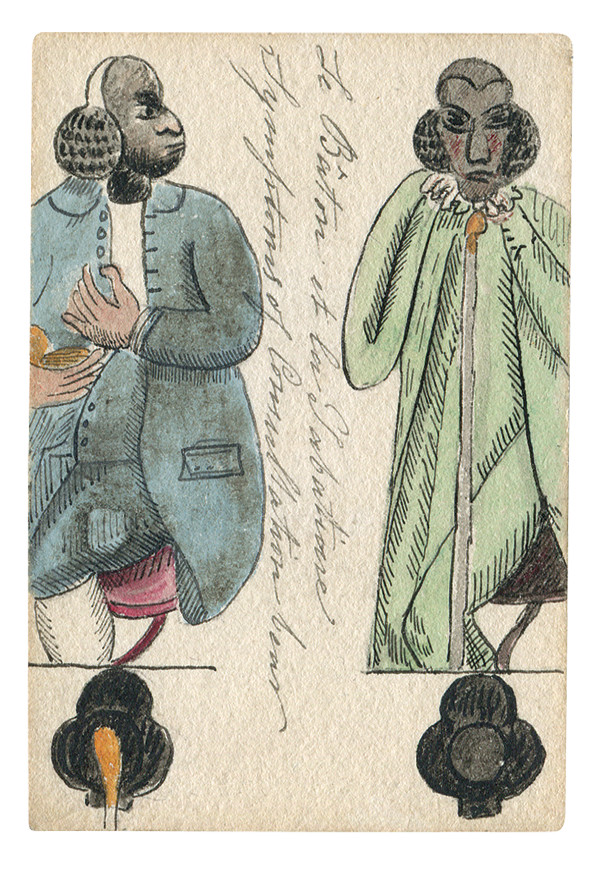 Le Bâton et la Tabatiere
Symptoms of Consultation